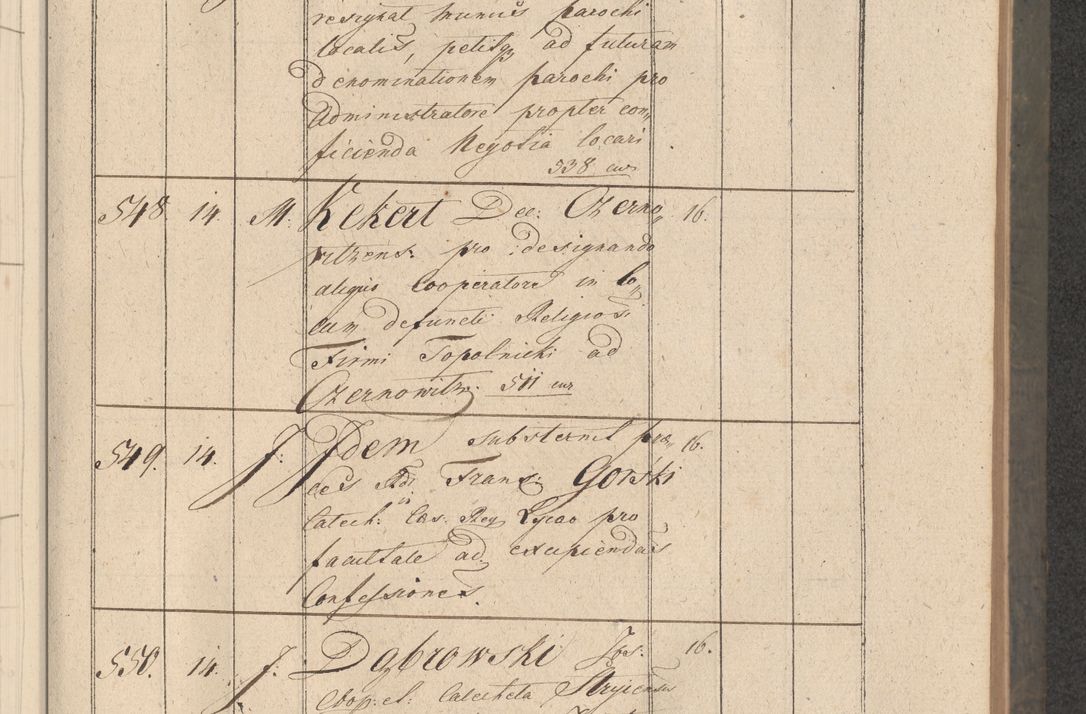 resignat munus parochi
localis, petitq ad futuram
denominationem parochi pro
Administratore propter con„
ficienda Negotia locari
538 cur
548 14. M. Kekert Dec: Czerno„ 16.
vitzens: pro designando
aliquo Cooperatore in lo„
cum defuncti Religiosi
Firmi Topolnicki ad
Czernowitz. 511 cur
549. 14. J. Idem substernit pre„ 16.
ces Franz: Gorski
in
Catech: Caes. Reg Lyceo pro
facultate ad excipiendas
Confessiones.
550. 14. J. Dąbrowski Jos: 16.
Coop: et Catecheta Stryiensis